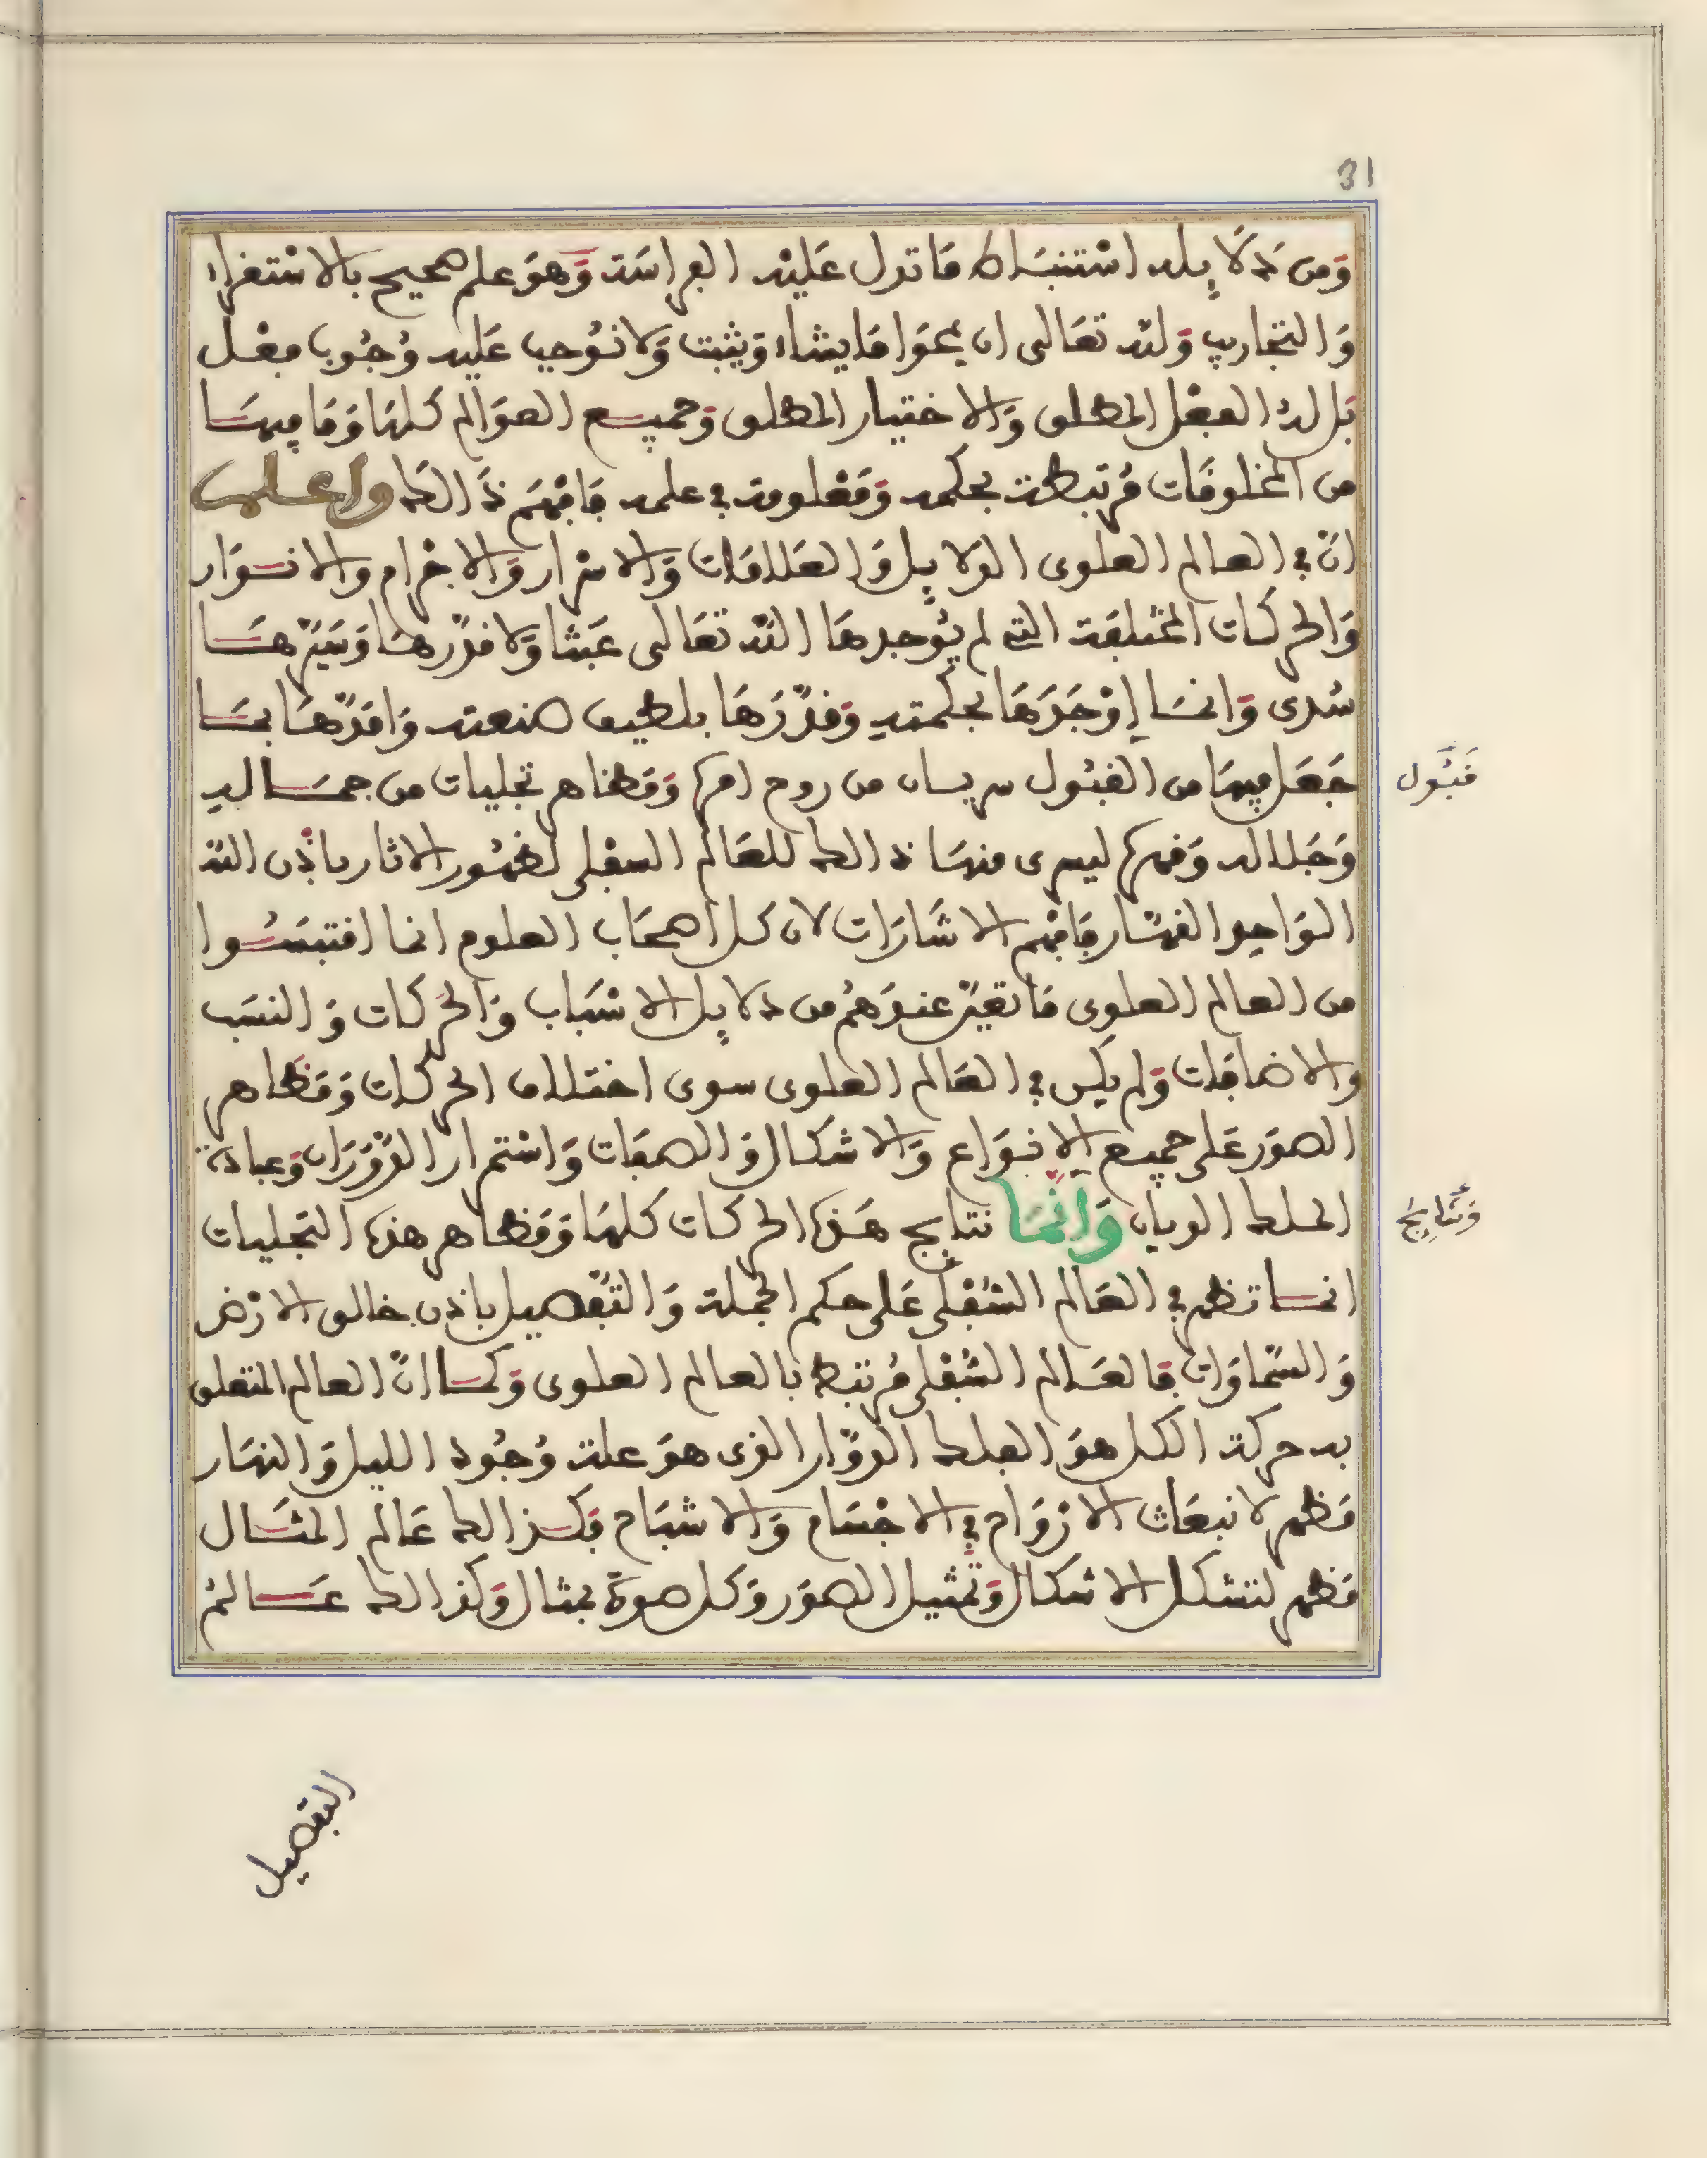 31
وَمن دَلَايِله اسْتنبَاط مَا تدل عَليْه الفراسَة وَهوَ علم صحيح بالاسْتقراء
وَالتجاريب وَلله تعَالى ان يمحوَا مَا يشاء وَيثبت وَلا نوُجب عَليه وُجُوب فعْل
بَل لهُ الفعْل المطلق وَالاختيار المطلق وَجميع العوَالم كلهَا وَمَا فيهَا
من المخلوقَات مُرتبطة بحكمه وَمَعْلومة في علمه فَافهَم ذَالك واعلم
انّ في العالم العلوى الدلايل وَالعَلامَات وَالاسْرار وَالاجْرام وَالانوَار
وَالحركَات المختلفَة التي لم يُوجدهَا الله تعَالى عَبثا وَلا قدّرهَا وَسَيّرهَا
سُدى وَانمَا اوْجَدَهَا بحكمتهِ وَقدّرَهَا بلطيف صنعته وَامَدّهَا بمَا
جَعَل فيهَا من القبُول سريان من روح امره وَمَظاهر تجليات من جمَالهِ
وَجَلاله وَقهره ليسرى منهَا ذالك للعَالم السفْلى لظهُور الاثار باذْن الله
الوَاحد القهّار فَافهم الاشَارَات لان كل اصحَاب العلوم انما اقتبسُوا
من العالم العلوى مَا تعيّن عندَهُم من دلايل الاسْبَاب وَالحركات وَالنسَب
وَالاضافَات وَلم يكن في العَالم العلوى سوى اختلاف الحركات وَمَظاهر
الصوَر عَلى جميع الانوَاع وَالاشكال وَالصفَات وَاسْتمرار الدّوَرَان وَعبادة
الملك الديان وَانمَا نتايج هَذه الحركات كلهَا وَمَظاهر هذه التجليات
انمَا تظهر في العَالم السُفْلى عَلى حكم الجملة وَالتّفصيل باذن خالق الارْض
وَالسّماوَات فَالعَالم السُفْلى مُرتبط بالعالم العلوى وَكما انّ العالم المتعلق
به حركة الكل هوَ الفلك الدوّار الذى هوَ علة وُجُود الليل وَالنهَار
فَظهر لانبعَاث الارْوَاح في الاجْسَام وَالاشبَاح فَكذالك عَالم المثَال
فظهر لتشكل الاشكال وَتمثيل الصوَر وَكل صورَة بمثال وَكذالك عَالمُ
قَبُول
وَنتَايج
التفصيل